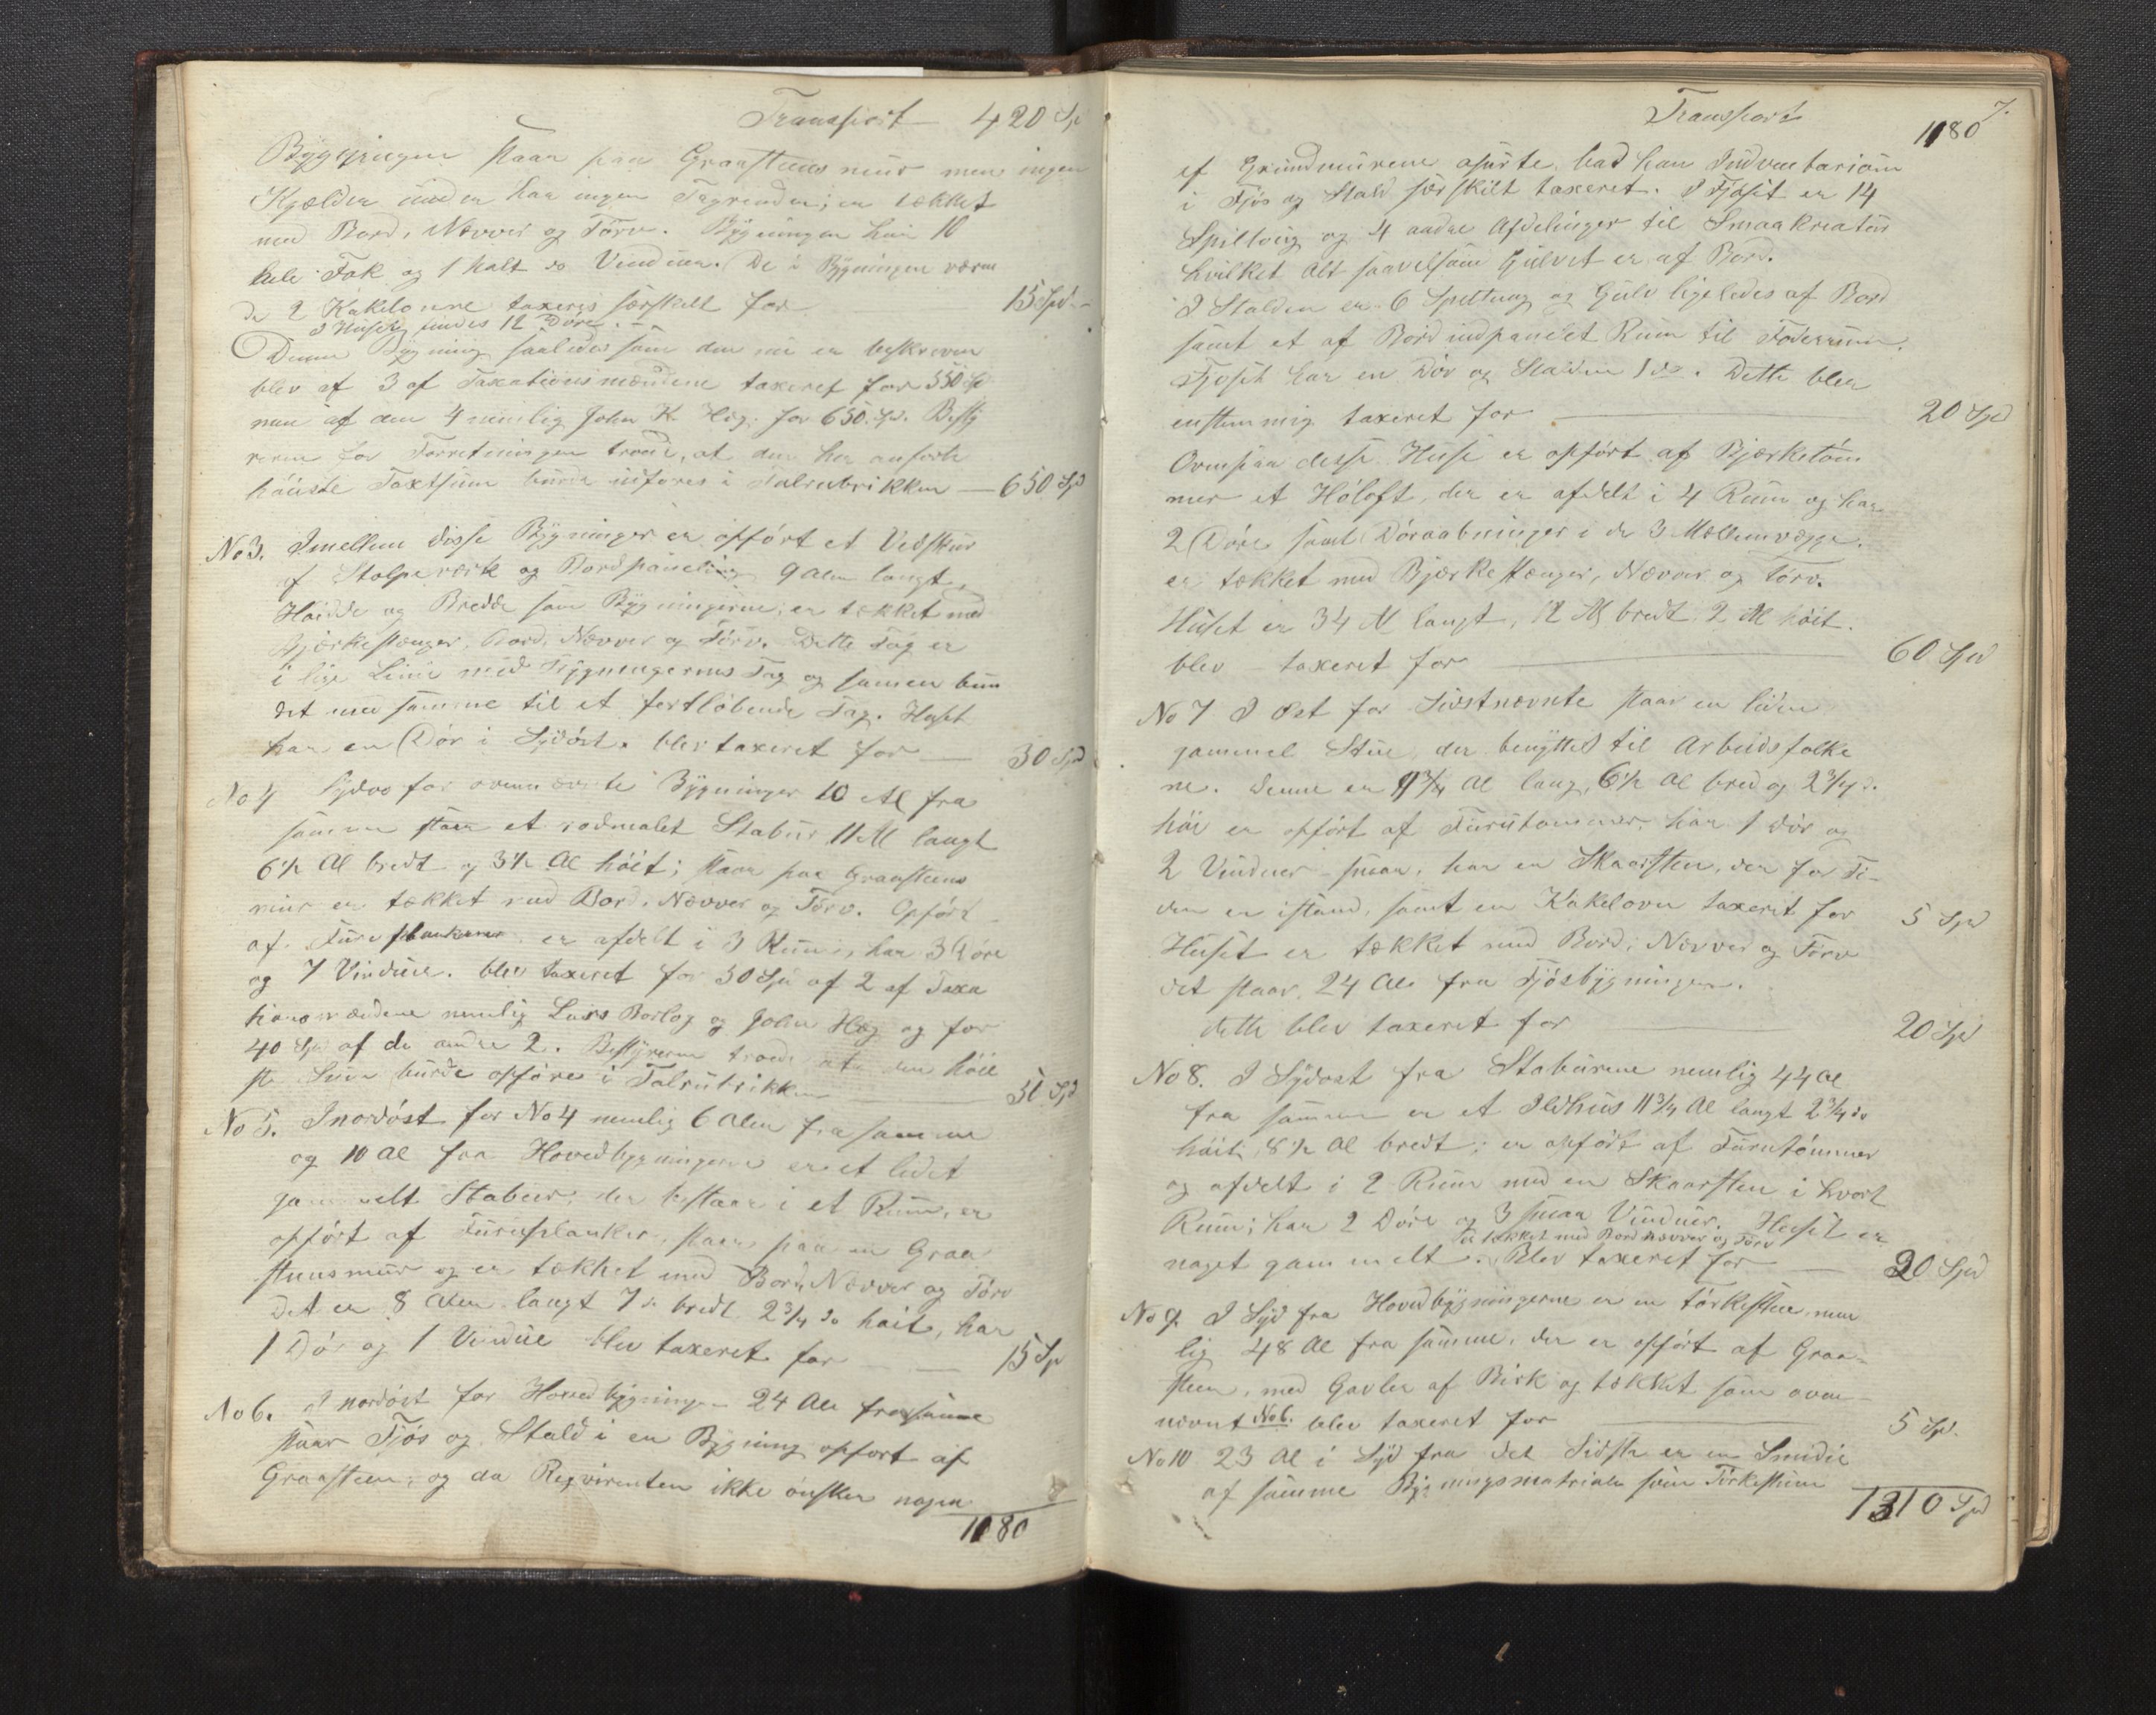 Transport 420 Sp
Bygningen staar paa Graasteens muur men ingen
Kjælder under har ingen Tagrender; er tækket
med Bord, Næver og Törv. Bygningen har 10
hele Fak og 1 halt do Vinduer. De i Bygningen være
de 2 Kakelovne taxeres særskilt for 15 Spd
I Huset findes 12 Döre.
Denne Bygning saaledes som den nu er beskreven
blev af 3 af Taxationsmændene taxeret for 550 Sp
men af den 4 nemlig John K. Hæg. for 650 Sp. Besty
reren for Forretningen troede, at den her anförte
höieste Taxtsum burde udföres i Talrubrikken — 650 Spd
No 3. Imellem disse Bygninger er opfört et Vedskur
af Stolpeværk og Bordpaneling 9 Alen langt,
Höide og Bredde som Bygningerne; er tækket med
Bjerkestænger, Bord, Næver og Törv. Dette Tag er
i lige Linie med Bygningernes Tag og sammen bun
det med samme til et fortlöbende Tag. Huset
har en Dör i Sydöst. blev taxeret for — 30 Spd
No 4 Sydvo for ovennævnte Bygninger 10 Al fra
samme staar et rödmalet Stabur 11 Al langt
6½ Al bredt og 3½ Al höit; staar paa Graasteens
mur er tækket med Bord, Næver og Törv. Opfört
af Furuplankerne er afdelt i 3 Rum, har 3 Döre
og 7 Vinduer. blev taxeret for 30 Spd af 2 af Taxa
tionsmændene nemlig Lars Borlog og John Hæg og for
40 Spd af de andre 2. Bestyreren troede at den höie
ste Sum burde opföres i Talrubrikken — Spd
No 5. I nordöst for No 4 nemlig 6 Alen fra samme
og 10 Al fra Hovedbygningerne er et lidet
gammelt Stabur; der bestaar i et Rum, er
opfört af Furuplanker, staar paa en Graa
steensmur og er tækket med Bord, Næver og Törv
Det er 8 Alen langt 7 do bredt 2¾ do höit, har
1 Dör og 1 Vindue blev taxeret for — 15 Sp
No 6. I nordöst for Hovedbygningen 24 Al fra samme
staar Fjös og Stald i en Bygning opfört af
Graasteen; og da Reqvirenten ikke önsker nogen
1180
Transport 1180 7.
af Grundmurene asurte. bad han Indventarium
i Fjös og Stald særskilt taxeret. I Fjöset er 14
Spiltoug og 4 andre Afdelinger til Smaakreatur
hvilket Alt saavelsom Gulvet er af Bord.
I Stalden er 6 Spiltoug og Gulv ligeledes af Bord
samt et af Bord indpanelet Rum til Foderrum.
Fjöset har en Dör og Stalden 1 do. Dette blev
enstemmig taxeret for — 20 Spd
Ovenpaa disse Huse er opfört af Bjerketöm
mer et Höloft, der er afdelt i 4 Rum og har
2 Döre samt Döraabninger i de 3 Mellemvægge.
er tækket med Bjerkestænger, Næver og Törv.
Huset er 34 Al langt, 12 Al bredt 2 Al höit.
blev taxeret for — 60 Spd
No 7 I Öst for Sidstnævnte staar en liden
gammel Stue der benyttes til Arbeidsfolke
ne. Denne er 9¾ Al lang, 6½ Al bred og 2¾ do
höi er opfört af Furutömmer, har 1 Dör og
2 Vinduer smaa, har en Skaarsten, der for Ti-
den er istand, samt en Kakelovn taxeret for 5 Spd
Huset er tækket med Bord, Næver og Törv
det staar 24 Al fra Fjösbygningen.
dette blev taxeret for — 20 Spd
No 8. I Sydost fra Staburene nemlig 44 Al
fra samme er et Ildhus 11¾ Al langt 2¾ do
höit, 8½ Al bredt; er opfört af Furutömmer
og afdelt i 2 Rum med en Skaarsten i hvert
Rum; har 2 Döre og 3 smaa Vinduer. Huset er
er tækket med Bord Næver og Törv
noget gammelt. Blev taxeret for — 20 Spd
No 9. I Syd fra Hovedbygningerne er en Törkestue, nem
lig 48 Al fra samme, der er opfört af Graa-
steen, med Gavler af Birk og tækket som oven-
nævnt No 6. blev taxeret for — 5 Spd.
No 10 23 Al i Syd fra det Sidste er en Smidie
af samme Bygningsmatriale som Törkestuen
1310 Spd